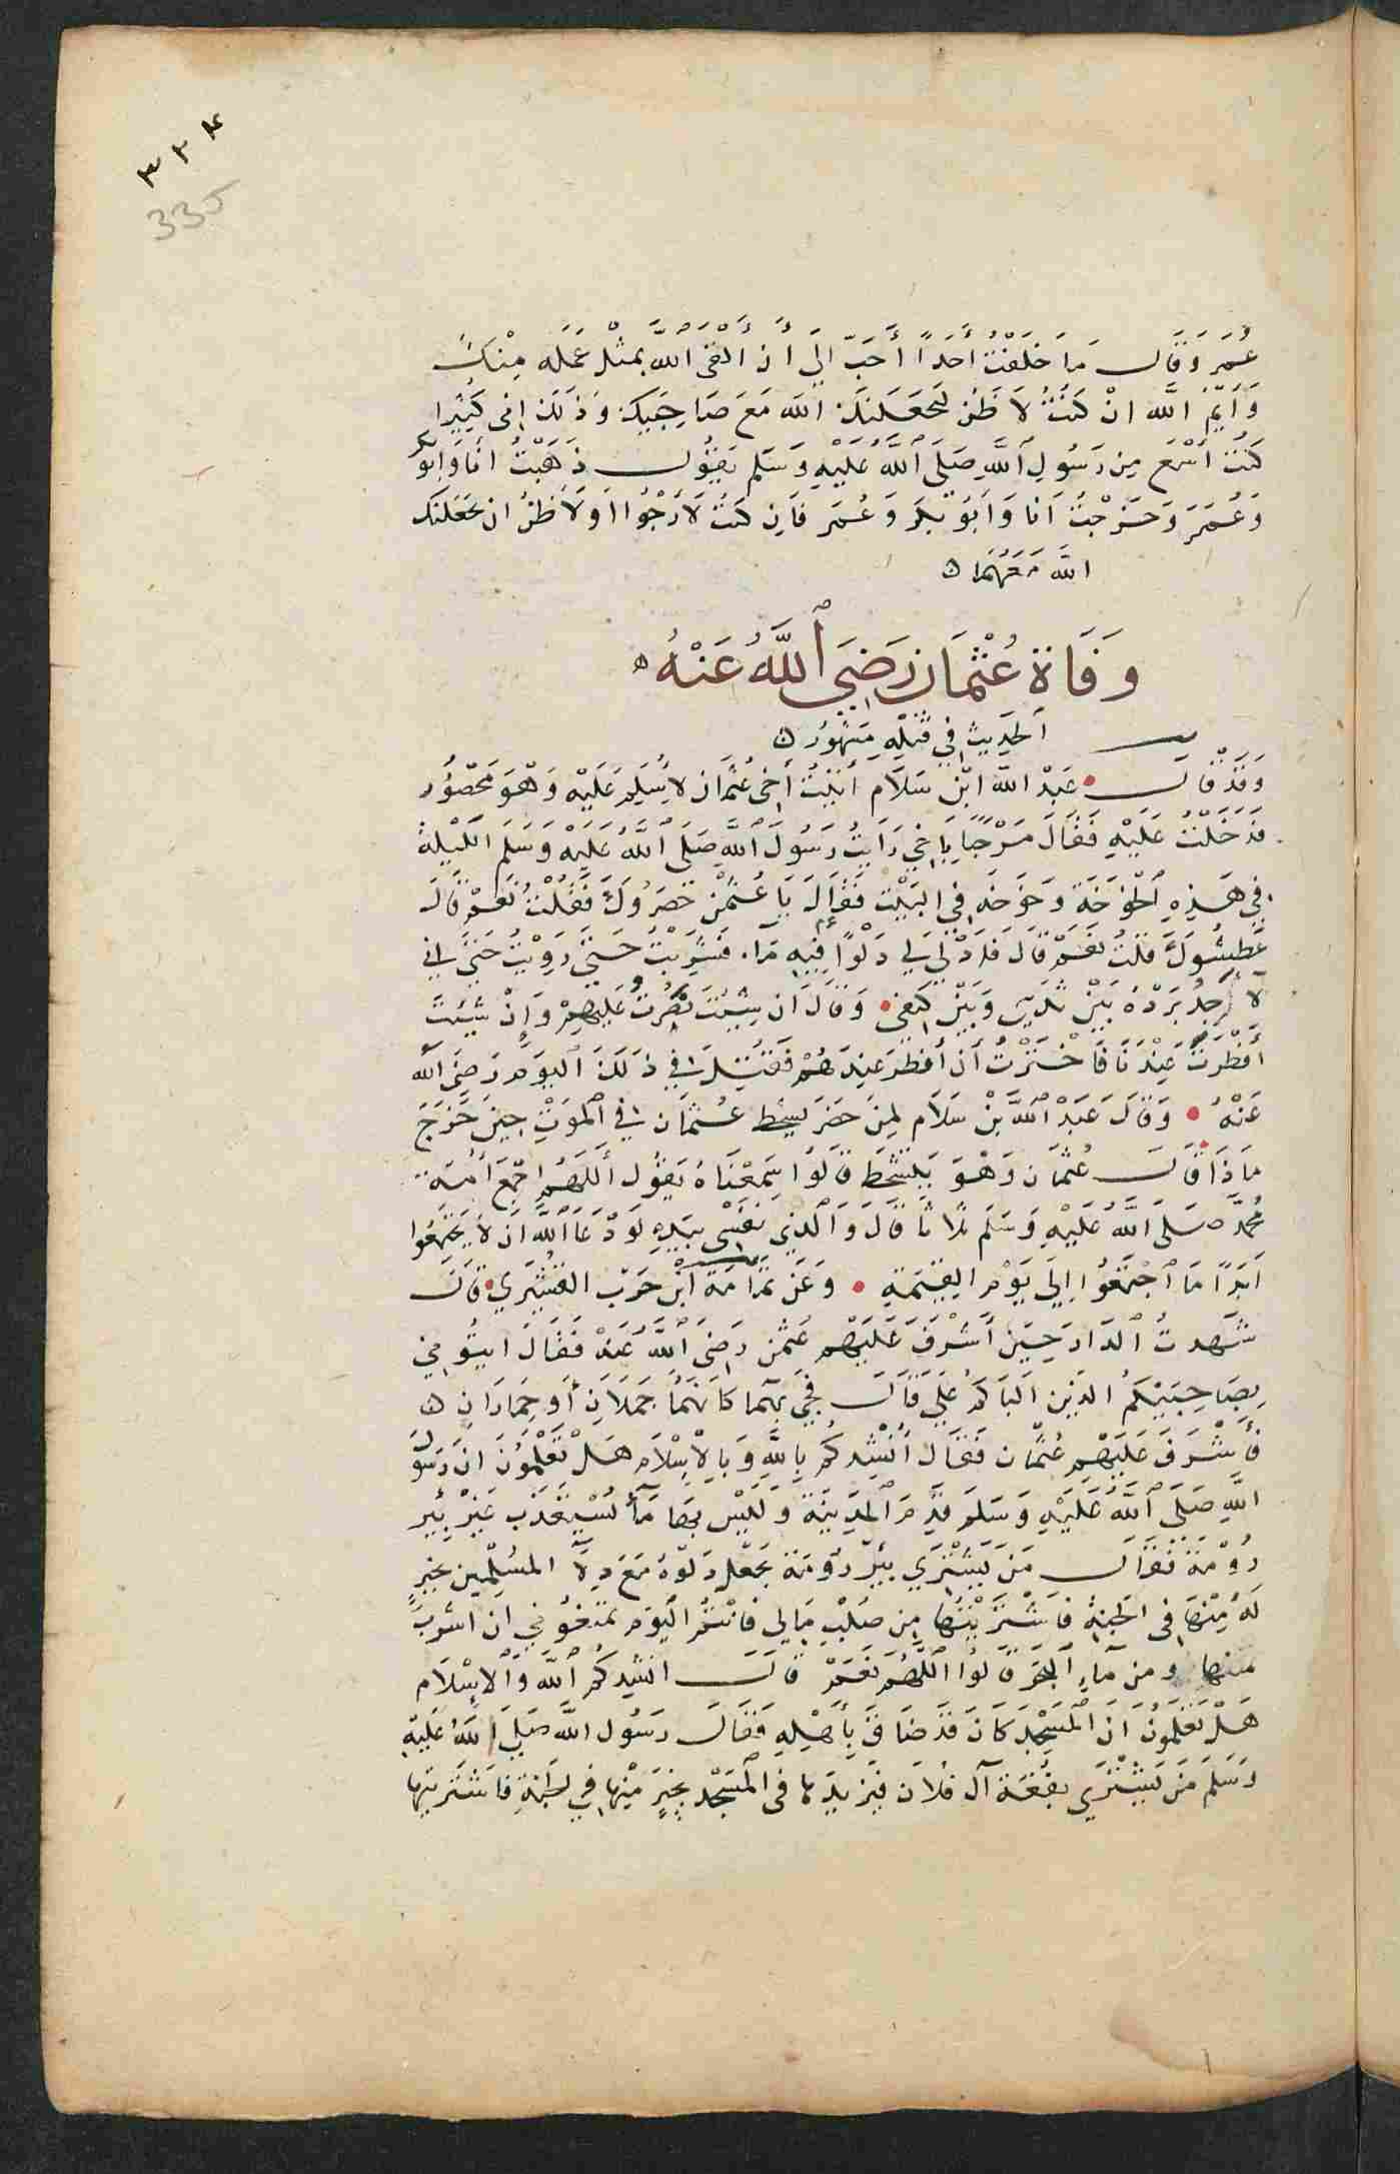 ٣٣٤
335
عُمَرَ وَقَال مَا خَلَفْتَ أَحَدًا أَحَبّ اِلَىَّ أَن أَلْقَى اللَّهَ بِمثْل عَمَلِه مِنْكَ
وَأيْمُ اللَّه انْ كُنْتُ لَاَظُنّ ليَجعَلنكَ اللَّه مَعَ صَاحِبَيكَ وَذلكَ اِنى كَثِيرًا
كنتُ أسْمَع مِن رَسُولِ اللَّهِ صَلَى اللَّهُ عَلَيْهِ وَسَلم يَقُول ذَهَبْتُ انَا وَابَو بكر
وَعُمَرَ وَخَرَجْتُ اَنا وَأبُو بَكر وَعُمَر فَإِن كنتُ لَارْجُوا أوَ لَاَظنُ ان يجعَلَكَ
اللَّه مَعَهُمَا ه
وَفَاة عُثْمَان رَضِىَ اللَّهُ عَنْهُ ه
اَلحَدِيث فى قَتْلِهِ مَشهُوُر ه
وَقَدْ قَالَ • عَبدُ اللَّه ابْن سَلَام أتيْتُ أخى عُثمَان لاُسَلِم عَلَيْه وَهْوَ مَحْصُوُر
فَدَخَلْتُ عَلَيْهِ فَقَالَ مَرْحَبًا يَا خِى رَايتُ رَسُولَ اللَّهِ صَلَى اللَّهُ عَلَيْه وَسَلَم اللَيلة
فى هَذِهِ الخَوْخَة وَخَوخَه فى البَيْت فَقَالَ يَا عُثمٰن حَصَرُوكَ فَقُلْتُ نَعَمْ قَالَ
عَطشُوكَ قلتُ نعَمْ قَالَ فَدَلى لِى دَلْوًا فيه مَاء فشَرِبْتُ حَتىَّ رَوِيْتُ حَتى اِنى
لَاَجدُ بَرْدَهُ بَيْن ثَديَىَّ وَبَيْن كتفى • وَقَالَ ان شِئتَ نُصِرْتَ عَلَيهِمْ وَإنْ شئتَ
أَفْطَرتَ عِنْدَنَا فَاخْتَرْتُ أَن أُفطرَ عندَهُمْ فَقتِلَ فى ذلكَ اليَومِ رَضىَ اللَّه
عَنْهُ • وَقَالَ عَبدُ اللَّه بْن سَلَام لِمنَ حَضَرَ تشحط عُثْمَان فى المَوَتِ حِينَ خَرَجَ
مَا ذَا قَالَ عُثمَان وَهْوَ يَتشَحَّط قَالوُا سَمعْنَاهُ يَقُول اللَهُم اجْمَع اُمَة
مُحمَّدٍ صَلَى اللَّهُ عَلَيْهِ وَسَلَم ثلاثا قَالَ وَالَّذِى نَفْسى بيَدِهِ لَوْ دَعَا اللَّه اَن لاَ يَجْتَمِعُوا
اَبَدًا مَا اجْتَمَعُوا اِلَى يَوْم القِيٰمَةِ • وَعَن ثمَامَة ابن حَزن القُشَيْرى • قَالَ
شَهدتُ الدَارَ حِينَ أشْرَفَ عَلَيْهِم عُثْمٰن رَضِىَ اللَّهُ عَنهُ فَقَالَ ايتُونى
بِصَاحِبَيكُمُ الذين اَلبَاكُم عَلَى قَالَ فجىَ بهِمَا كانهُمَا جَمَلَان أوَ حِمَارَانِ ه
فَأشرَفَ عَلَيْهِم عُثمَان فَقَالَ أنشدُكُم بِاللَّهِ وَبالْاِسْلَام هَلْ تَعْلَمُونَ انَ رَسُوَل
اللَّهِ صَلَى اللَّهُ عَلَيْهِ وَسَلَم قَدِمَ المَدِينَة وَليْس بهَا مَا يُسْتَعذَب غَيْر بئر
رُوْمَة فَقَالَ مَن يَشْتَرى بئر رُومَة يَجْعَل دَلْوَهُ مَعَ دِلَاء المسُلمين بخَيرٍ
لَهُ مِنْهَا فى الجَنةِ فَاشْتَرَيْتُهَا مِن صُلْبِ مَالى فَانْتُمُ اليَوم تمنَعُوْنى ان اشرَبَ
منهَا ومن مَاءِ البَحَر قَالوُا اللَّهُم نعَمْ قَالَ انشدكُم اللَّهَ وَالاِسْلَام
هَلْ تعْلمُونَ انَ المَسْجِد كَانَ قَدْ ضَاقَ بِأهْلِهِ فَقَالَ رَسُول اللَّه صَلَى اللهُ عَلَيْهِ
وَسَلَم مَن يَشْترَى بقُعَة آل فُلَان فيَزيدَها فى المَسْجد بخَيرٍ مِنْهَا فى الجَنةِ فَاشترَيتهَا